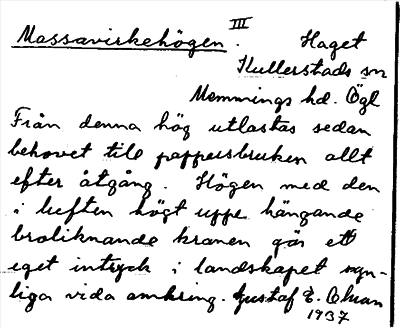 III
Massavirkehögen. Haget
Kullerstads sn
Memmings hd. Ögl
Från denna hög utlastas sedan
behovet till pappersbruken allt
efter åtgång. Högen med den
i luften högt uppe hängande
broliknande kranen gör ett
eget intryck i landskapet syn-
liga vida omkring. Gustaf E.
1937